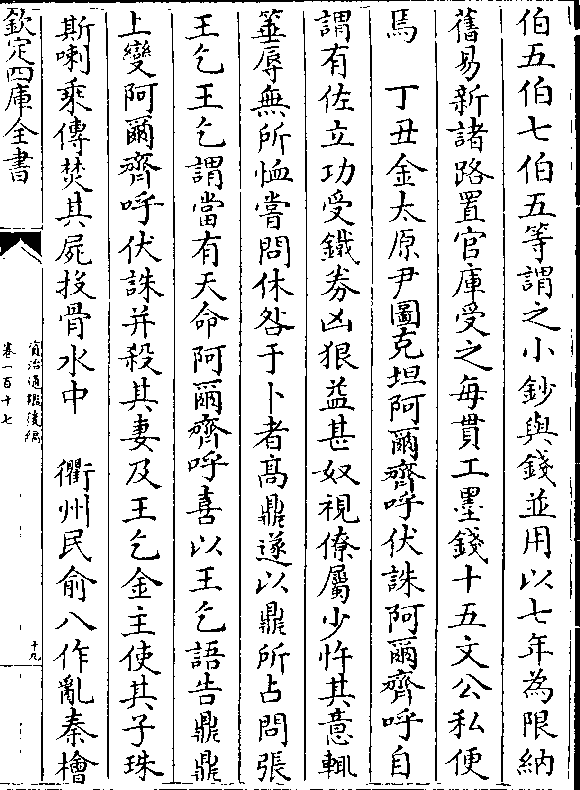 伯五伯七伯五等謂之小鈔與錢並用以七年為限納
舊易新諸路置官庫受之每貫工墨錢十五文公私便
焉　丁丑金太原尹圖克坦阿爾齊呼伏誅阿爾齊呼自
謂有佐立功受鐵券凶狠益甚奴視僚屬少忤其意輒
箠辱無所恤嘗問休咎于卜者高鼎遂以鼎所占問張
王乞王乞謂當有天命阿爾齊呼喜以王乞語告鼎鼎
上變阿爾齊呼伏誅并殺其妻及王乞金主使其子珠
斯喇乘傳焚其屍投骨水中　衢州民俞八作亂秦檜
欽定四庫全書
資治通鑑後編
卷一百十七
十九